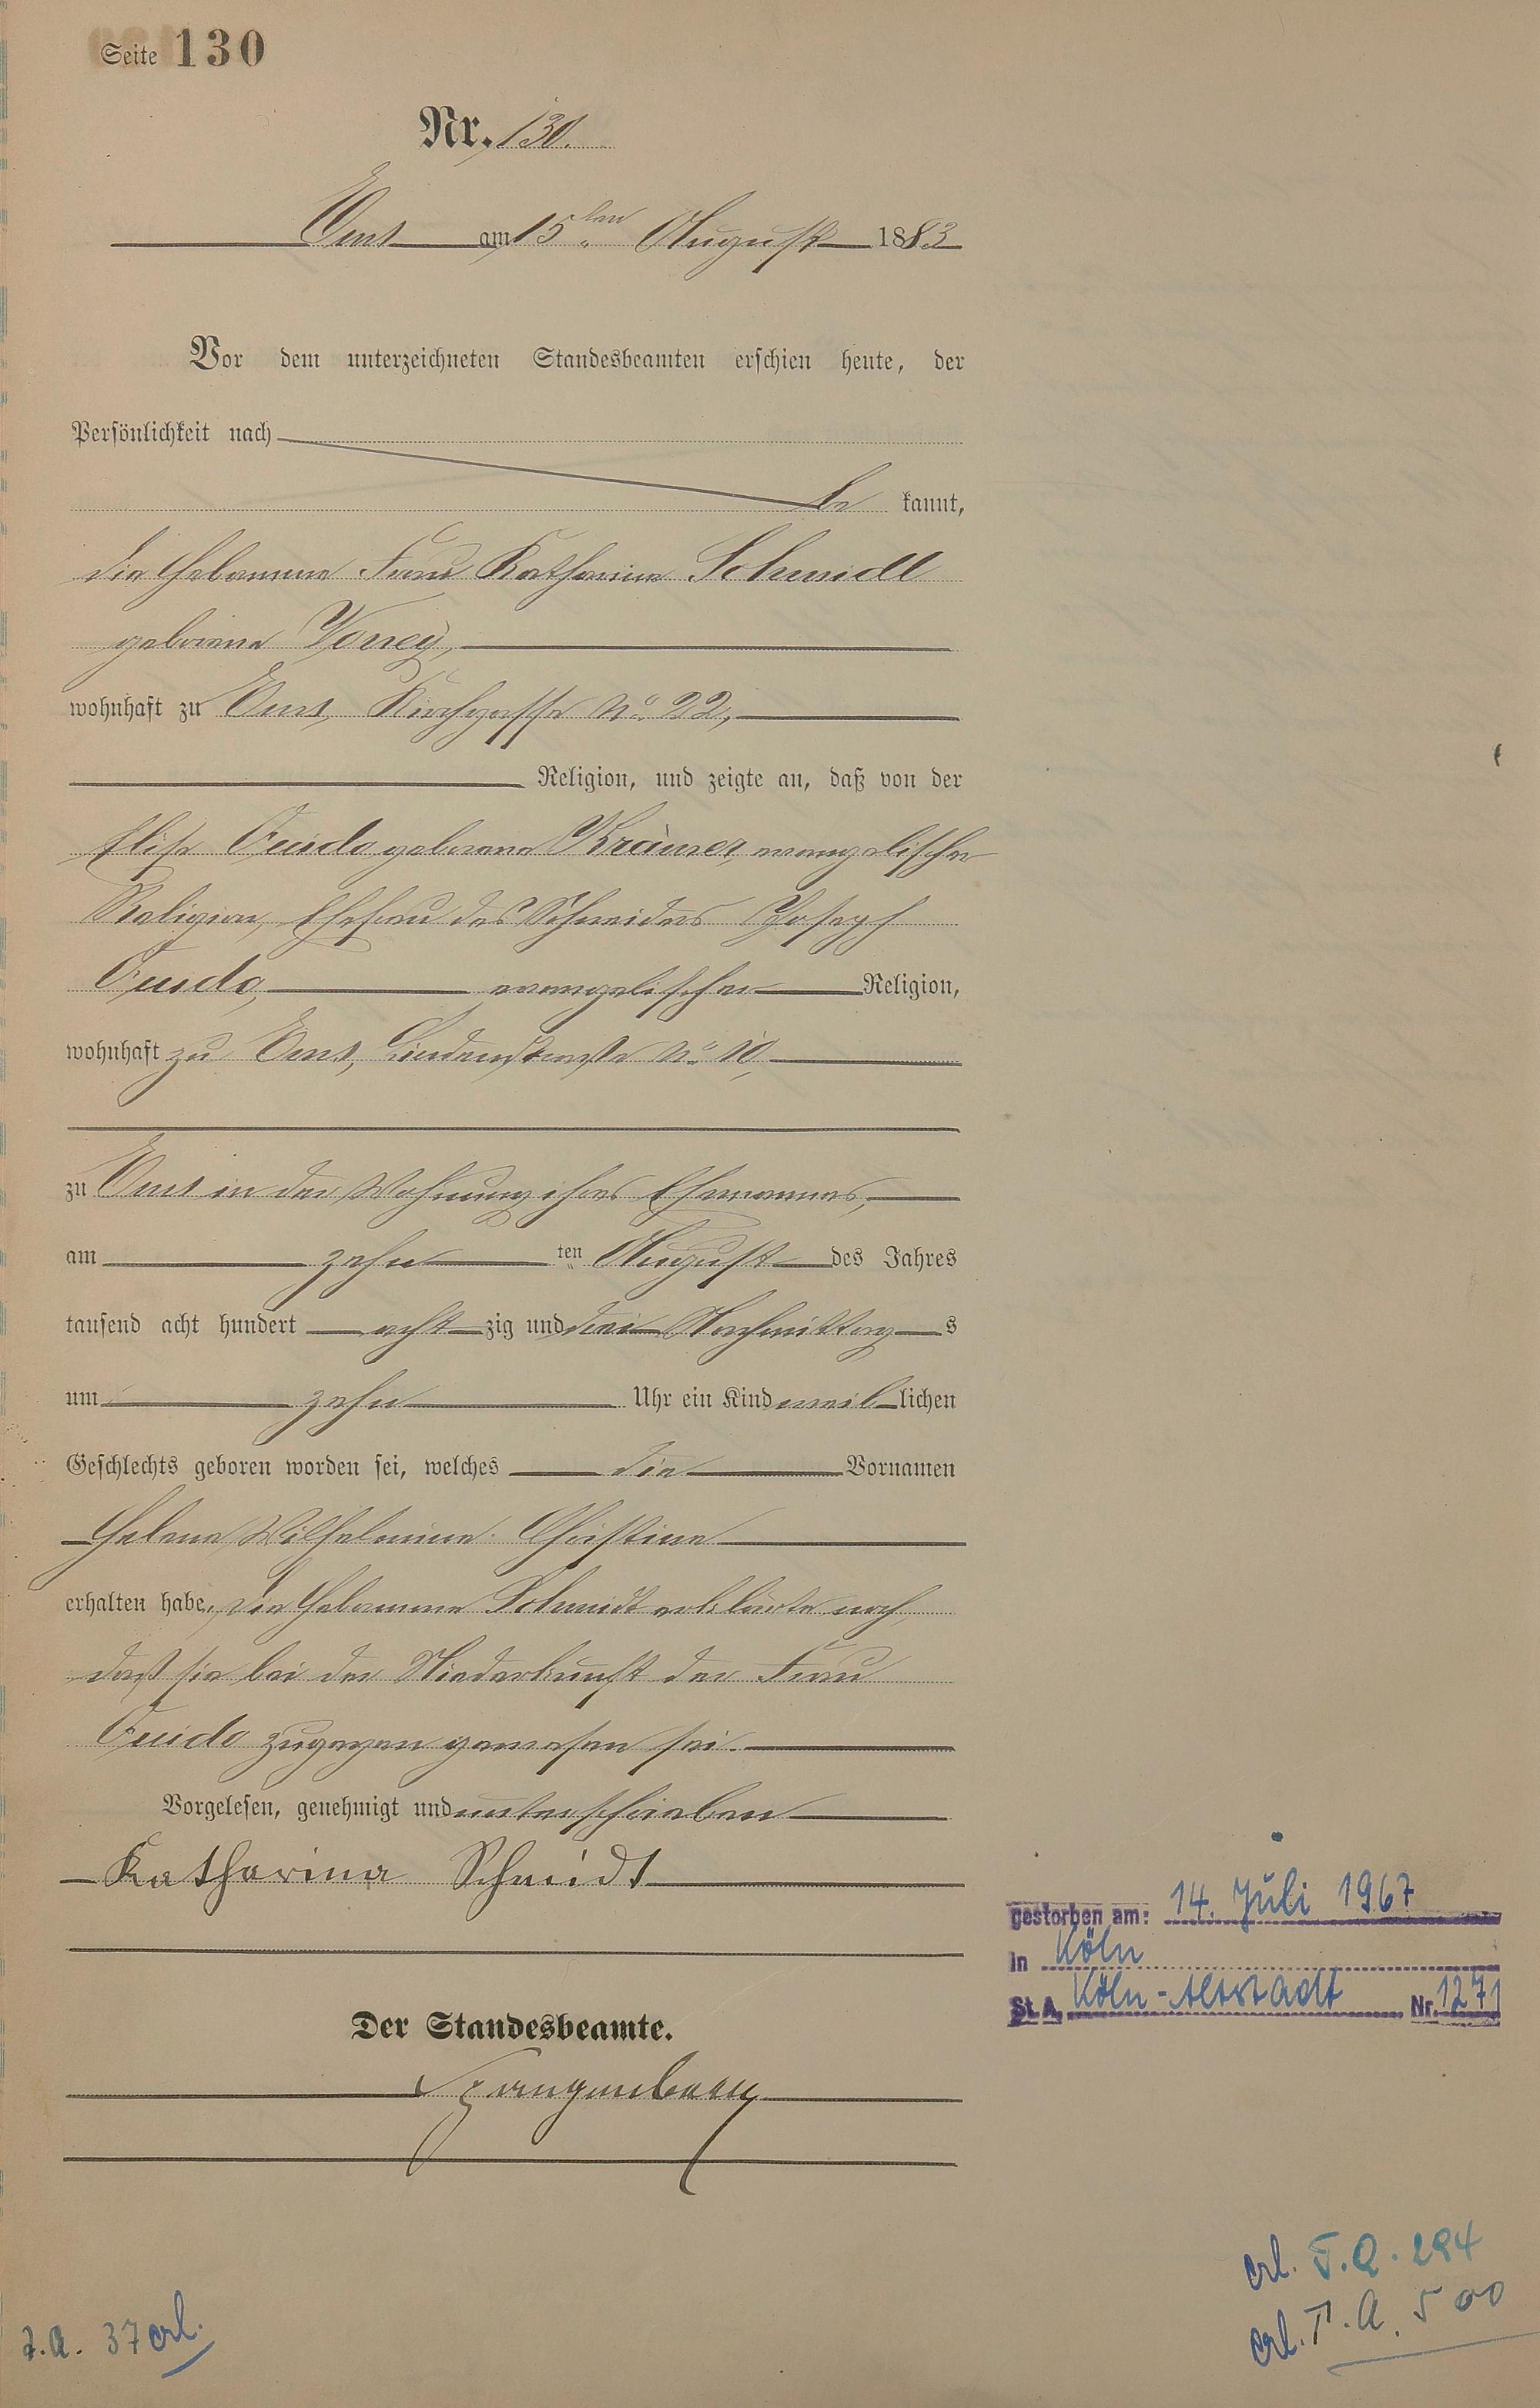 Seite 130
Nr. 130.
Ems am 15ten August 1883
Vor dem unterzeichneten Standesbeamten erschien heute, der
Persönlichkeit nach
be kannt,
die Hebamme Frau Katharina Schmidt
geborene Vorrey,
wohnhaft zu Ems, Kirchgasse No 22,
Religion, und zeigte an, daß von der
Elise geborene Krämer, evangelischer
Religion, Ehefrau des Schneiders Joseph
evangelischer Religion,
wohnhaft zu Ems, Lindenstraße No 10,
zu Ems in der Wohnung ihres Ehemannes,
am zehn ten August des Jahres
tausend acht hundert acht zig und drei Nachmittag s
um zehn Uhr ein Kind weib lichen
Geschlechts geboren worden sei, welches die Vornamen
Helene Wilhelmine Christine
erhalten habe. Die Hebamme Schmidt erklärte noch,
daß sie bei der Niederkunft der Frau
zugegen gewesen sei.
Vorgelesen, genehmigt und unterschrieben
Katharina Schmidt
Der Standesbeamte.
Spangenberg
gestorben am: 14. Juli 1967
in Köln
St. A. Köln-Altstadt Nr. 1271
erl. T.A. 294
erl. T.A. 500
z.a. 37 erl.